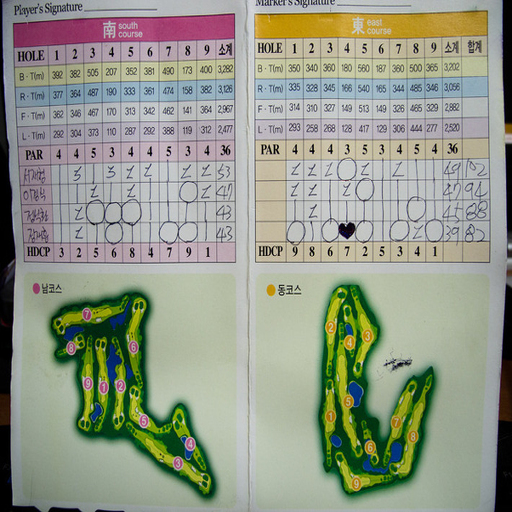 Player's Signature
南 south course
HOLE 1 2 3 4 5 6 7 8 9 소계
B · T(m) 392 382 505 207 352 381 490 173 400 3,282
R · T(m) 377 364 487 190 333 361 474 158 382 3,126
F · T(m) 362 346 467 170 313 342 462 141 364 2,967
L · T(m) 292 304 373 110 287 292 388 119 312 2,477
PAR 4 4 5 3 4 4 5 3 4 36
53
47
43
43
HDCP 3 2 5 6 8 4 7 9 1
남코스
7
8
6
9 1 2
5
4
3
Marker's Signature
東 east course
HOLE 1 2 3 4 5 6 7 8 9 소계 합계
B · T(m) 350 340 360 180 560 187 360 500 365 3,202
R · T(m) 335 328 345 166 540 165 344 485 346 3,056
F · T(m) 314 310 327 149 513 149 326 465 329 2,882
L · T(m) 293 258 268 128 417 129 306 444 277 2,520
PAR 4 4 4 3 5 3 4 5 4 36
49 102
47 94
45 88
39 82
HDCP 9 8 6 7 2 5 3 4 1
동코스
2
3
4
1
5
6
7
8
9